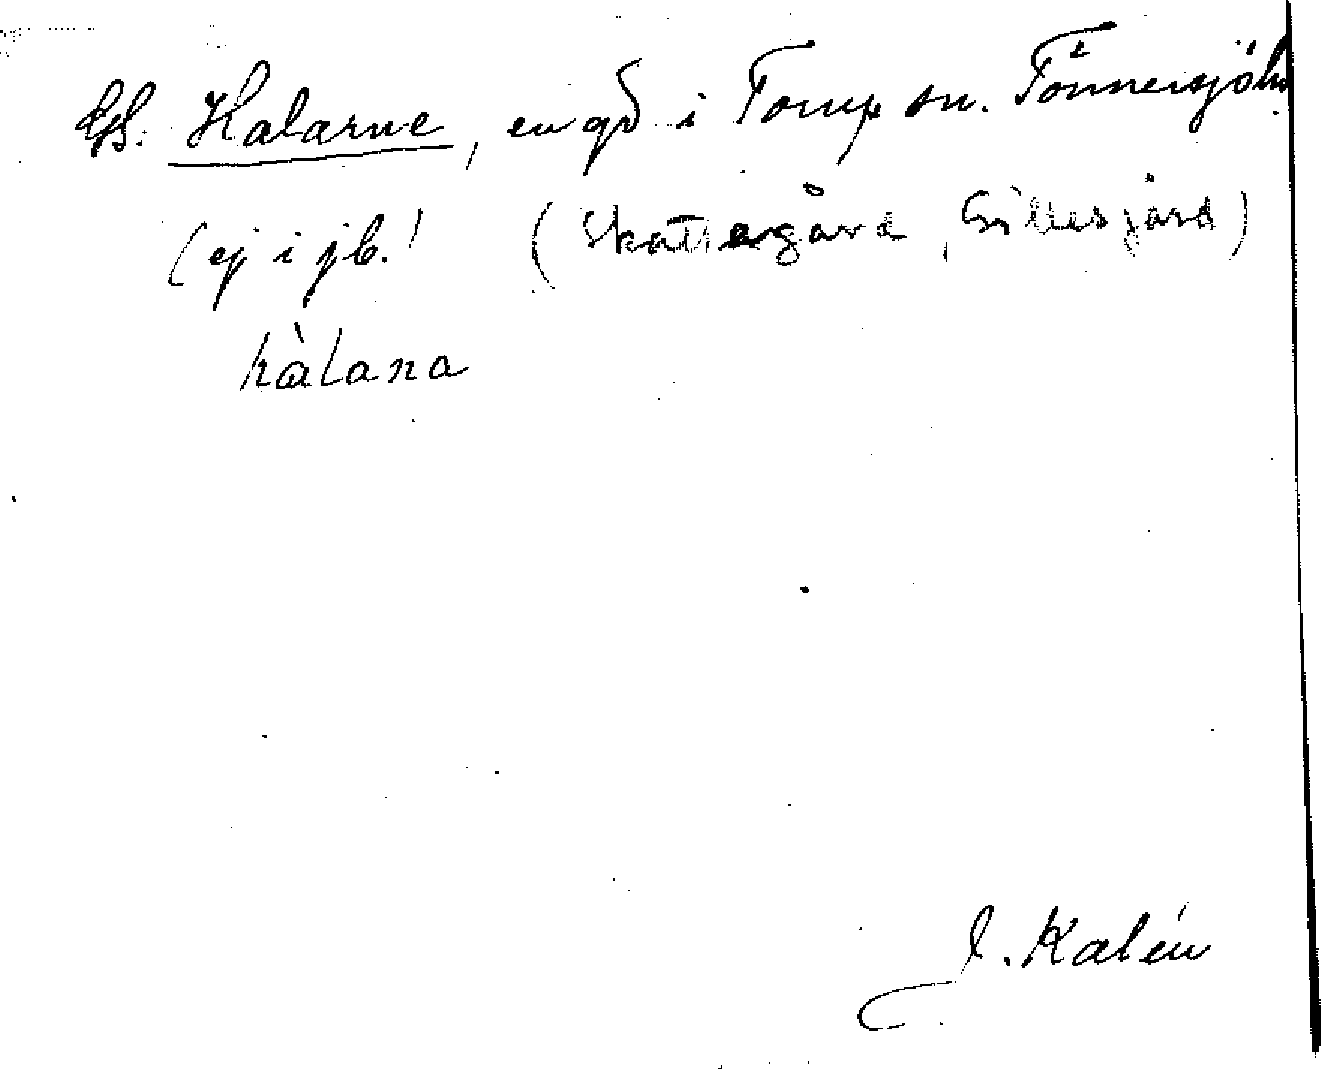 Halarne, en gd i Torup sn. Tönnersjö hd.
(ej i jb.! (Skattagård, Gillesjård)
hàlana
J. Kalén